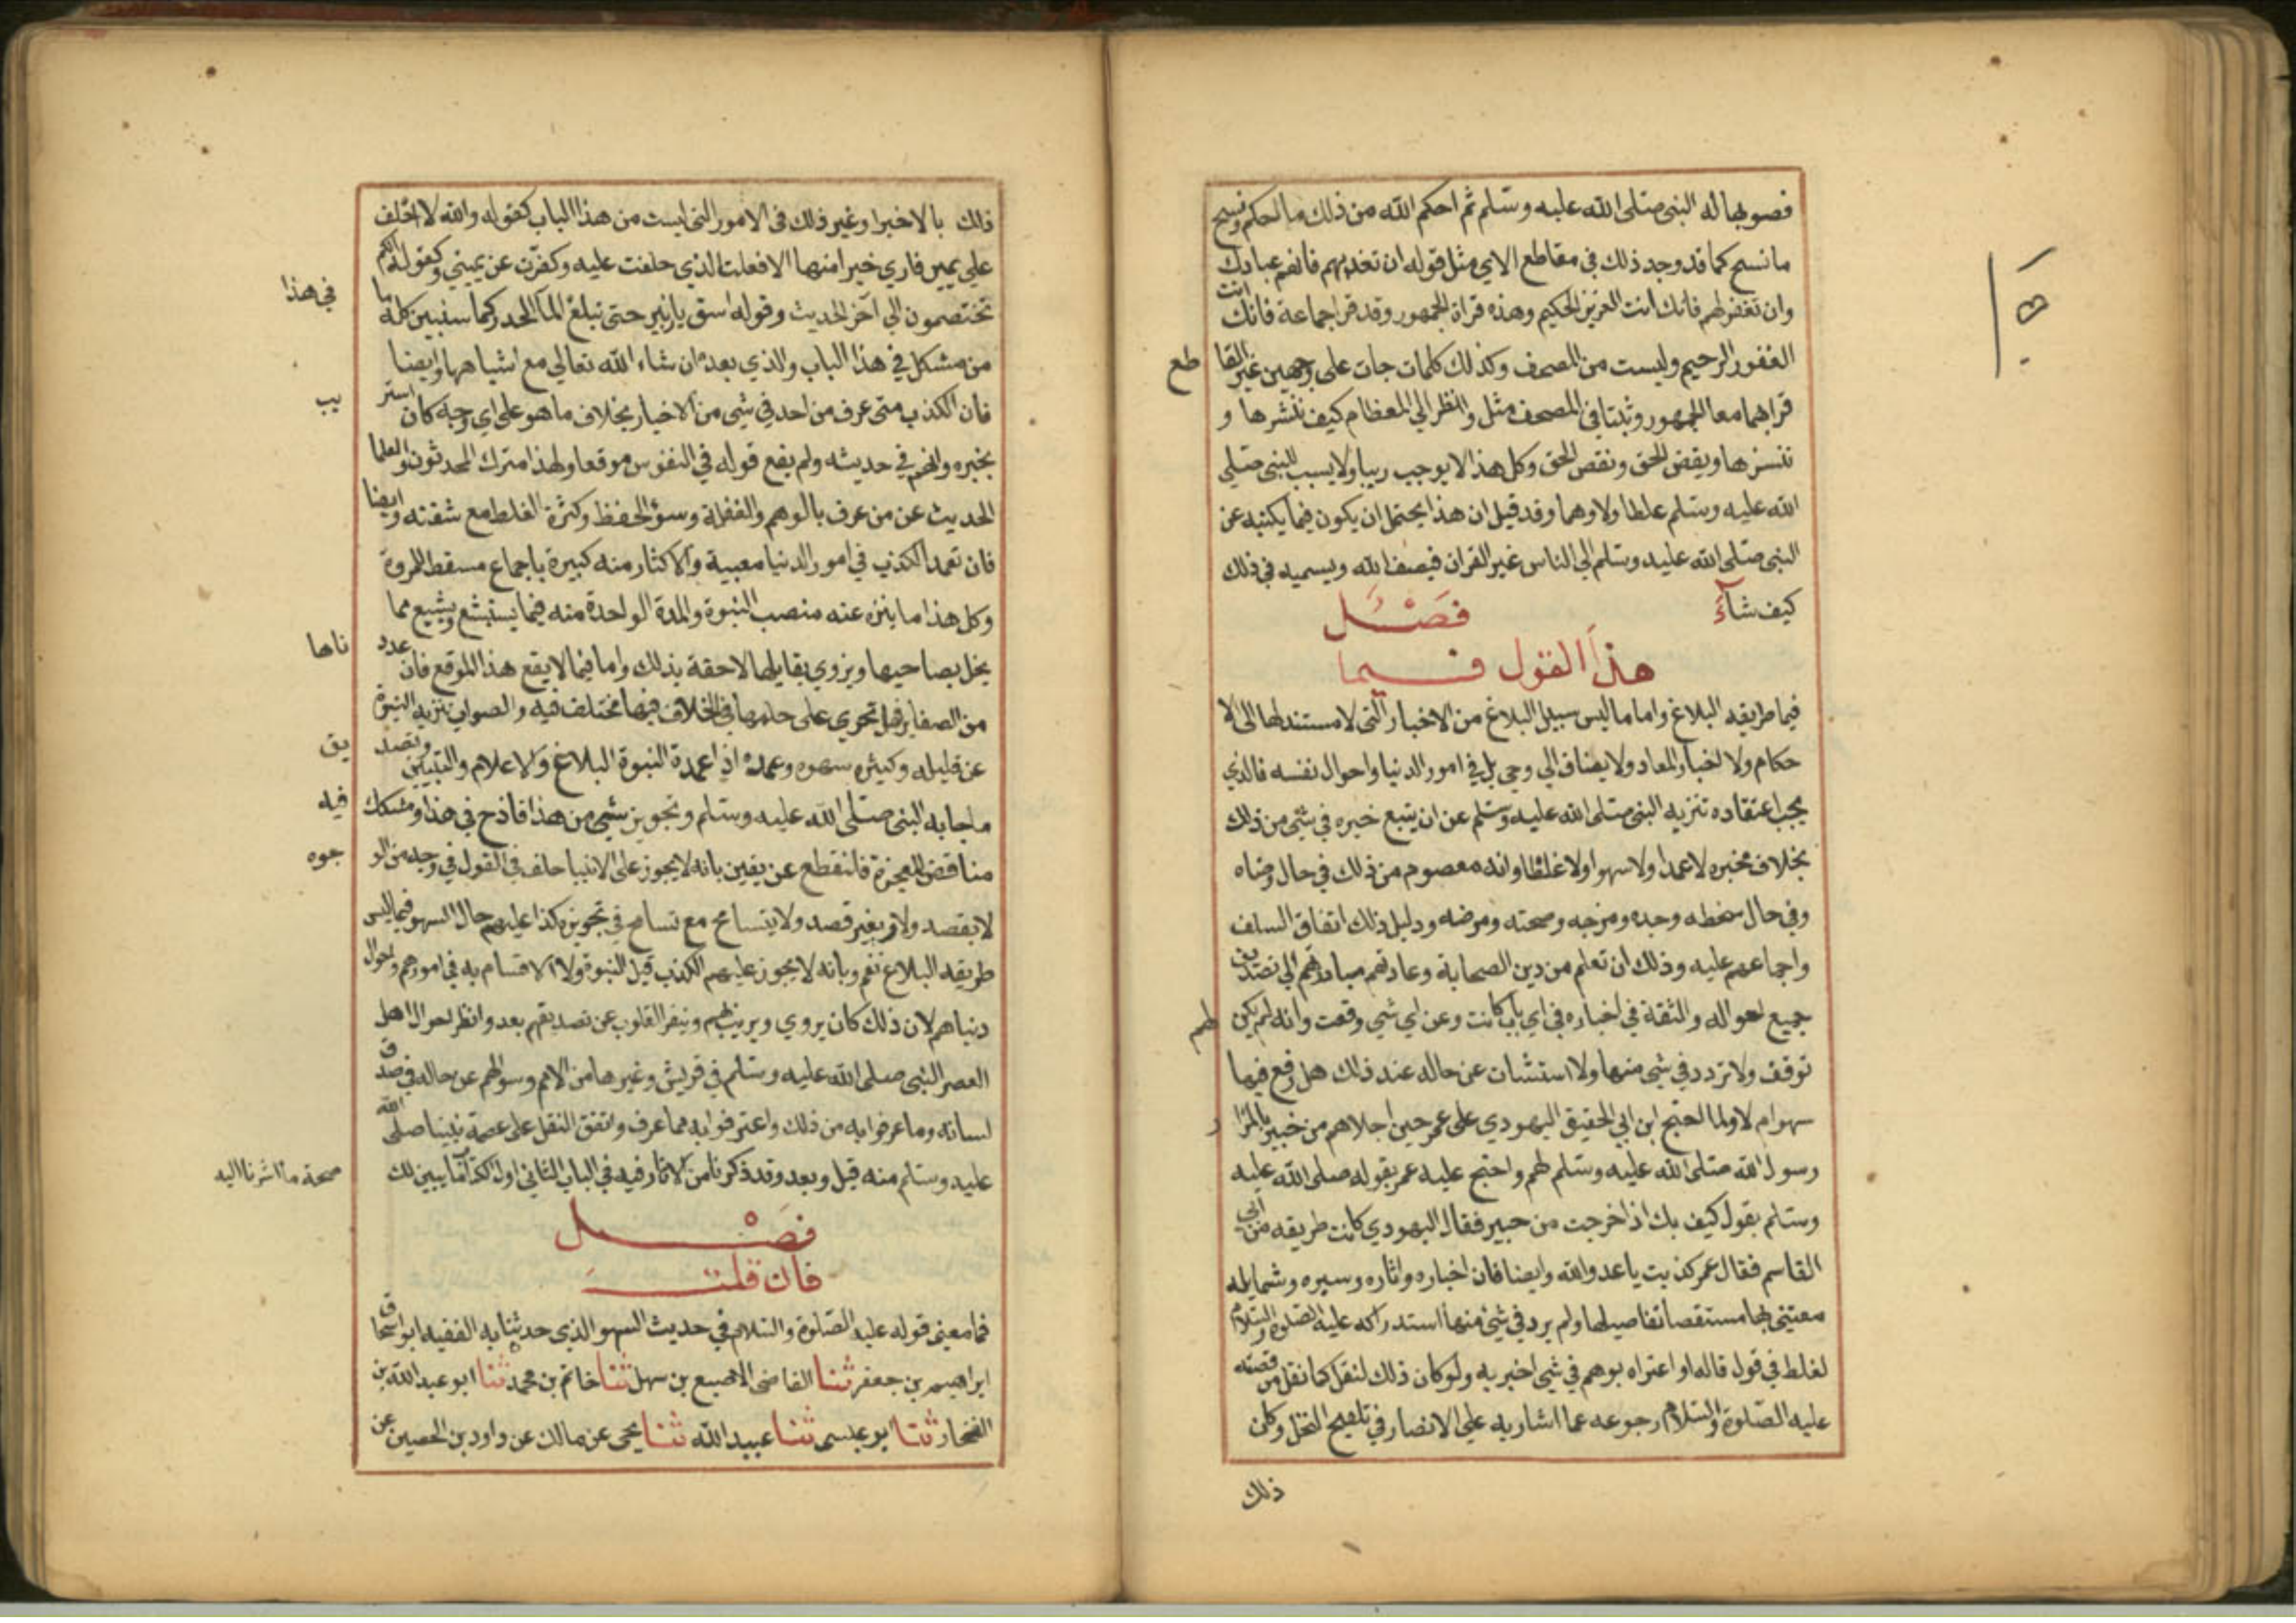 فصوبها له النبى صلى الله عليه وسلم ثم احكم الله من ذلك ما احكم ونسخ
ما نسخ كما قد وجد ذلك في مقاطع الاي مثل قوله ان تعذبهم فانهم عبادك
وان تغفر لهم فانك انت العزيز الحكيم وهذه قراة الجمهور وقد قرا جماعة فانك انت
الغفور الرحيم وليست من المصحف وكذلك كلمات جات على وجهين غير القا
طع
قرا بهما معا الجمهور وثبتا في المصحف مثل وانظر الي العظام كيف ننشرها و
ننشزها ويقض الحق ونقص الحق وكل هذا لا يوجب ريبا ولا يسبب للنبى صلى
الله عليه وسلم غلطا ولا وهما وقد قيل ان هذا يحتمل ان يكون فيما يكتبه عن
النبى صلى الله عليه وسلم الي الناس غير القران فيصف الله ويسميه في ذلك
كيف شآء
فصل
هذا القول فيما
فيما طريقه البلاغ واما ما ليس سبيل البلاغ من الاخبار التى لا مستند لها الى الا
حكام ولا اخبار المعاد ولا يضاف الي وحي بل في امور الدنيا واحوال نفسه فالذي
يجب اعتقاده تنزيه النبى صلى الله عليه وسلم عن ان يتبع خبره في شئ من ذلك
بخلاف مخبره لا عمدا ولا سهوا ولا غلطا وانه معصوم من ذلك في حال رضاه
وفي حال سخطه وجده ومزحه وصحته ومرضه ودليل ذلك اتفاق السلف
واجماعهم عليه وذلك ان تعلم من دين الصحابة وعادتهم مبادرتهم الي تصديق
جميع احواله والثقة في اخباره في اي باب كانت وعن اي شي وقعت وانه لم يكن
لهم
توقف ولا تردد في شي منها ولا استثبات عن حاله عند ذلك هل وقع فيها
سهو ام لا ولما احتج ابن ابي الحقيق اليهودي على عمر حين اجلاهم من خيبر باقرا
ر
رسول الله صلى الله عليه وسلم لهم واحتج عليه عمر بقوله صلى الله عليه
وسلم بقول كيف بك اذا خرجت من خيبر فقال اليهودي كانت طريقه من ابي
القاسم فقال عمر كذبت يا عدو الله وايضا فان اخباره واثاره وسيره وشمايله
معتنى بها مستقصا تفاصيلها ولم يرد في شئ منها استدراكه عليه الصلوة والسلام
لغلط في قول قاله او اعتراه بوهم في شي اخبر به ولو كان ذلك لنقل كما نقل من قصته
عليه الصلوة والسلام رجوعه عما اشار به علي الانصار في تلقيح النخل وكان
ذلك
ذلك بالاخبرا وغير ذلك فى الامور التى ليست من هذا الباب كقوله والله لا احلف
علي يمين فاري خيرا منها الا فعلت الذي حلفت عليه وكفرت عن يمينى وكقوله انكم
تختصمون الي آخر الحديث وقوله اسق يا زبير حتى تبلغ المآ الجدر كما سنبين كل ما
في هذا
من مشكل في هذا الباب والذي بعده ان شاء الله تعالي مع اشباهها وايضا
فان الكذب متى عرف من احد في شى من الاخبار بخلاف ما هو على اي وجه كان استر
يب
بخبره واتهم في حديثه ولم يقع قوله في النفوس موقعا ولهذا مترك المحدثون والعلما
الحديث عن من عرف بالوهم والغفلة وسوء الحفظ وكثرة الغلط مع شقته وايضا
فان تعمد الكذب في امور الدنيا معيبة والاكثار منه كبيرة باجماع مسقط للمروة
وكل هذا ما ينزه عنه منصب النبوة والمدة الواحدة منه فيما يستبشع ويشيع مما
يخل بصاحبها ويزوي بقايلها لاحقة بذلك واما فيما لا يقع هذا الموقع فان عدد
ناها
من الصغاير فهل تجري على حكمها في الخلاف فيها مختلف فيه والصواب تنزيه النبوة
عن قليله وكيثره سهوه وعمده اذ اعمدة النبوة البلاغ والاعلام والتبيين وتصد
يق
ما جا به النبى صلى الله عليه وسلم وتجويز شي من هذا قادح في هذا ومشكك
فيه
مناقض للمعجزة فلنقطع عن يقين بانه لا يجوز على الانبيا خلف في القول في وجه من الو
جوه
لا بقصد ولا وبغير قصد ولا يتسامح مع تسامح في تجويز كذا عليهم حال السهو فيما ليس
طريقه البلاغ نعم وبانه لا يجوز عليهم الكذب قبل النبوة ولا الاقسام به في امورهم واحوال
دنياهم لان ذلك كان يروي ويريب بهم وينفر القلوب عن تصديقهم بعد وانظر احوال اهل
العصر النبى صلى الله عليه وسلم في قريش وغيرها من الامم وسوالهم عن حاله في صدق
لسانه وما عرفوا به من ذلك واعترفوا به مما عرف واتفق النقل على عصمة نبينا صلى الله
عليه وسلم منه قبل وبعد وقد ذكرنا من الاثار فيه في الباب الثاني اول الكتاب ما يبين لك
صحة ما اشرنا اليه
فصل
فان قلت
فما معنى قوله عليه الصلوة والسلام في حديث السهو الذي حدثنا به الفقيه ابو اسحاق
ابراهيم بن جعفر ثنا القاضى الاصبع بن سهل ثنا خاتم بن محمد ثنا ابو عبد الله بن
الفخار ثنا ابو عيسى ثنا عبيد الله ثنا يحى عن مالك عن داود بن الحصين عن